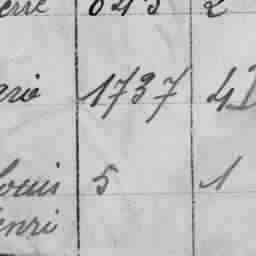 erre 643 2
arie 1737 4
Louis 5 1
enri